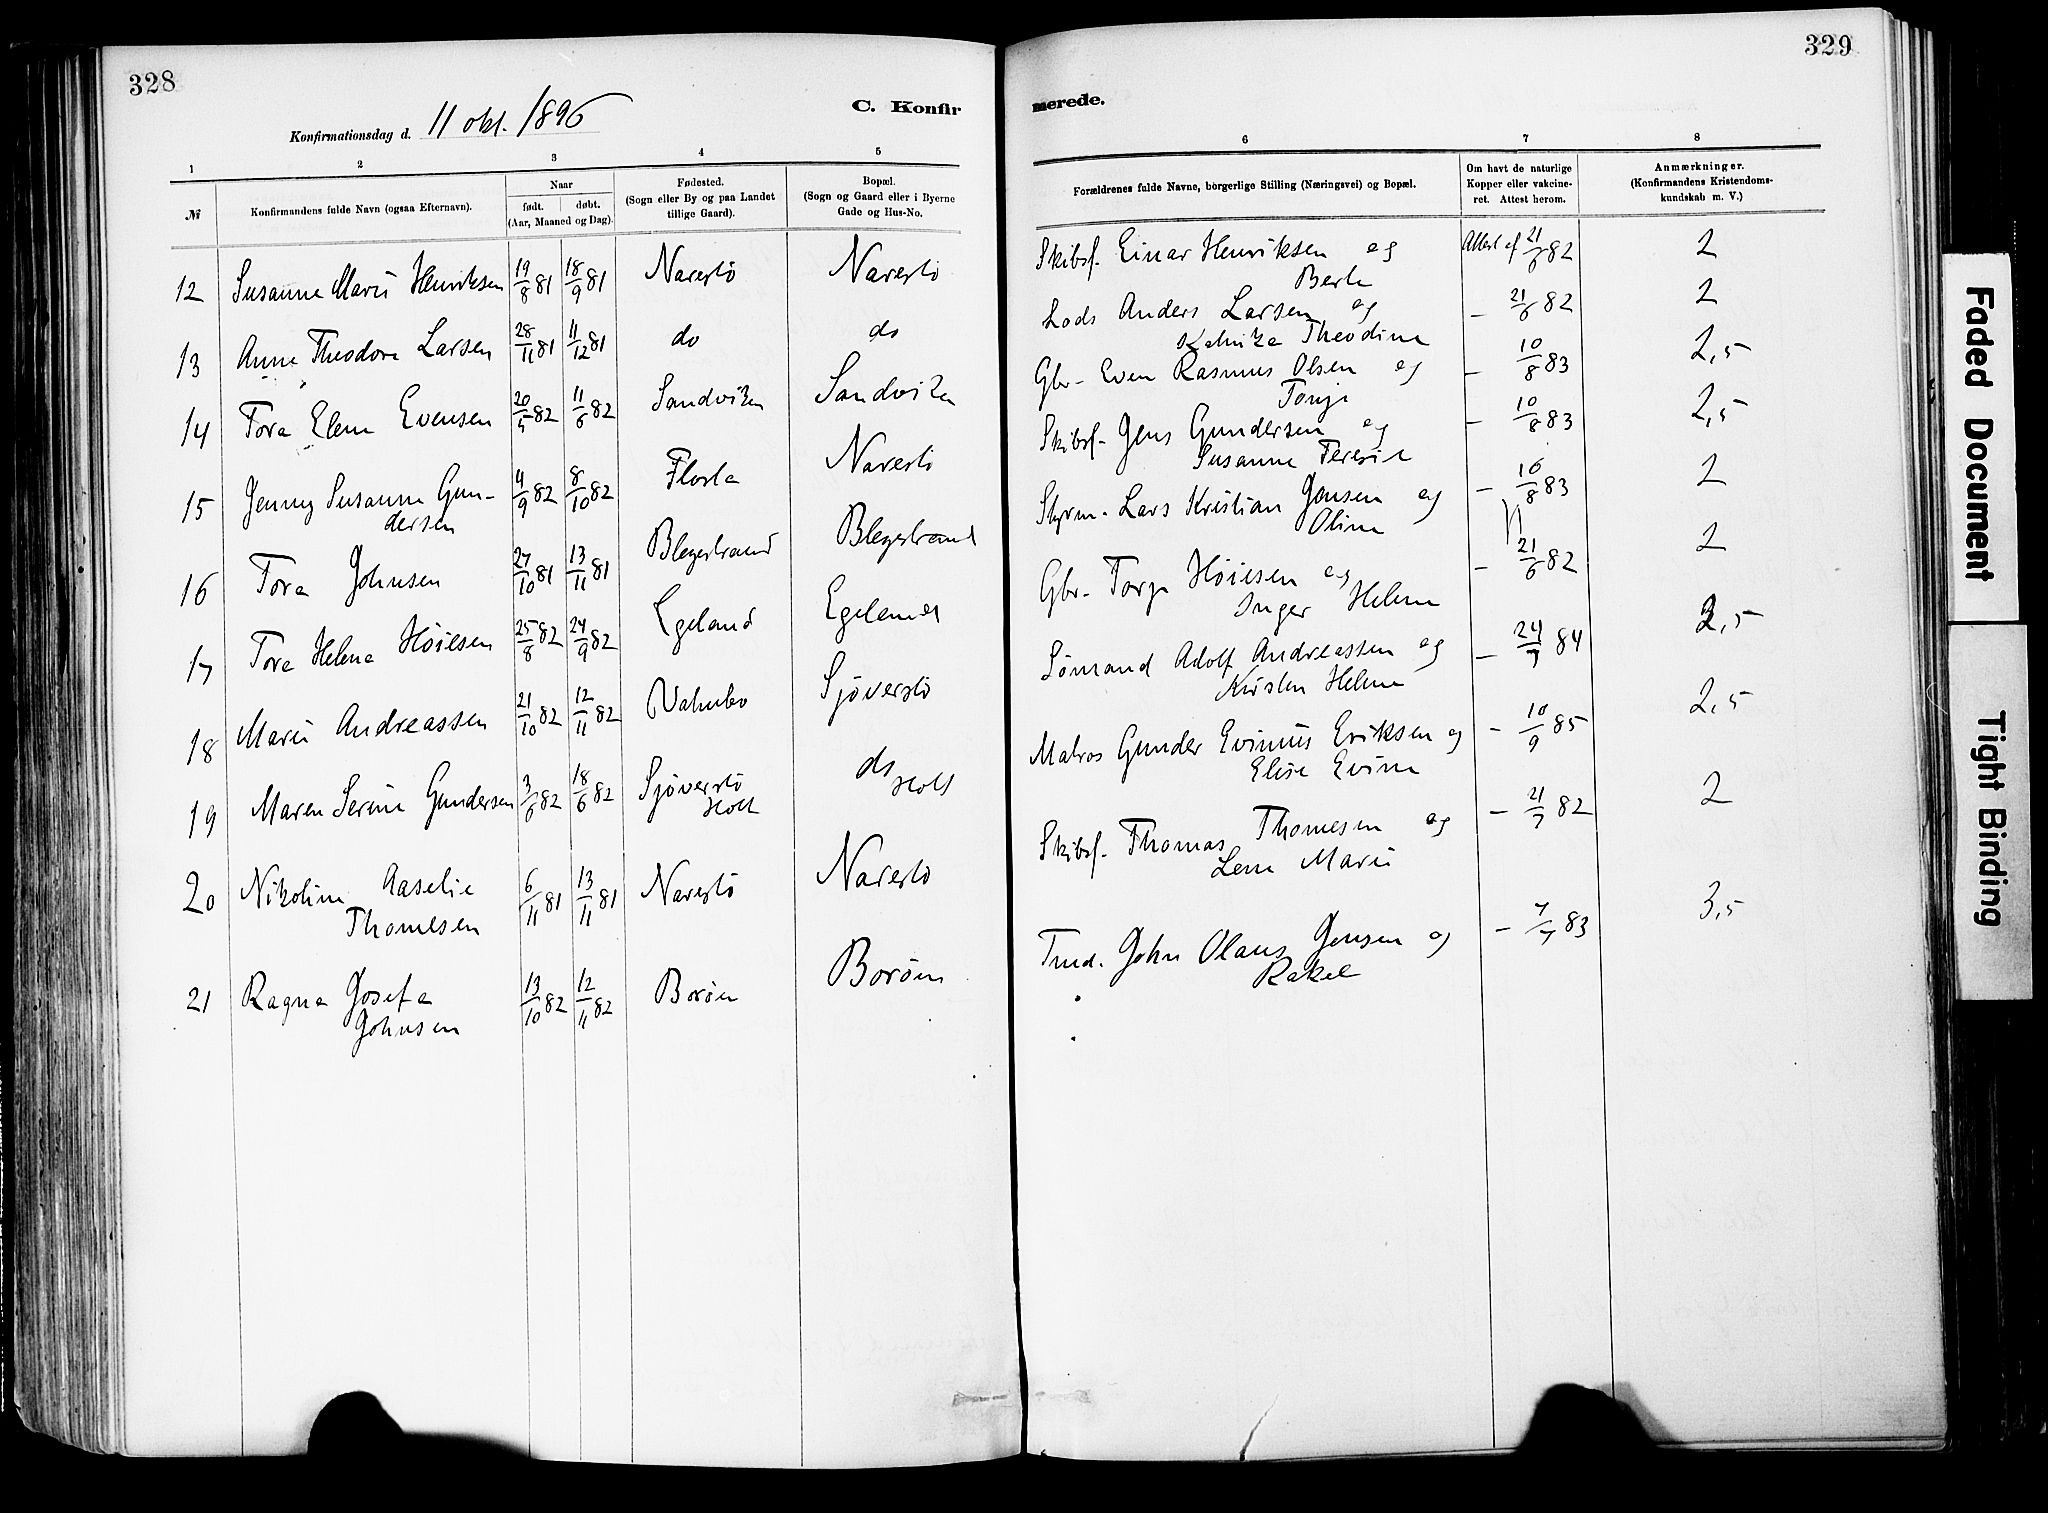 328
329
Konfirmationsdag d. 11 okt. 1896
C. Konfir
merede.
1 2 3 4 5 6 7 8
№
Konfirmandens fulde Navn (ogsaa Efternavn).
Naar
født. døbt.
(Aar, Maaned og Dag).
Fødested.
(Sogn eller By og paa Landet
tillige Gaard).
Bopæl.
(Sogn og Gaard eller i Byerne
Gade og Hus-No.
Forældrenes fulde Navne, borgerlige Stilling (Næringsvei) og Bopæl.
Om havt de naturlige
Kopper eller vakcine-
ret. Attest herom.
Anmærkninger.
(Konfirmandens Kristendoms-
kundskab m. V.)
12 Susanne Marie Henriksen 19/8 81 18/9 81 Narestö Narestö Skibsf. Einar Henriksen og Attest af 21/6 82 2
Berte
13 Anne Theodora Larsen 28/11 81 11/12 81 do do Lods Anders Larsen og – 21/6 82 2
Theodine
14 Tora Elene Evensen 20/5 82 11/6 82 Sandviken Sandviken Gbr. Even Rasmus Olsen og – 10/8 83 2,5
Tonje
15 Jenny Susanne Gun- 4/9 82 8/10 82 Flosta Narestö Skibsf. Jens Gundersen og – 10/8 83 2,5
dersen Susanne Teresie
16 Tora Johnsen 27/10 81 13/11 81 Blegestrand Blegestrand Styrm. Lars Kristian Jensen og – 16/8 83 2
Oline
17 Tora Helene Höiesen 25/8 82 24/9 82 Egeland Egeland Gbr. Torje Höiesen og – 21/6 82 2
Inger Helene
18 Marie Andreassen 21/10 82 12/11 82 Sjöverstö Sömand Adolf Andreassen og – 24/7 84 2,5
Kirsten Helene
19 Maren Serine Gundersen 3/6 82 18/6 82 Sjöverstö do Matros Gunder Evinius Eriksen og – 10/9 85 2,5
Holt Holt Elise Evine
20 Nikoline Aaselie 6/11 81 13/11 81 Narestö Narestö Skibsf. Thomas Thomesen og – 21/7 82 2
Thomesen Lene Marie
21 Ragna Josefa 13/10 82 12/11 82 Boröen Boröen Tmd. John Olaus Jensen og – 7/7 83 3,5
Johnsen Rakel
Faded Document
Tight Binding